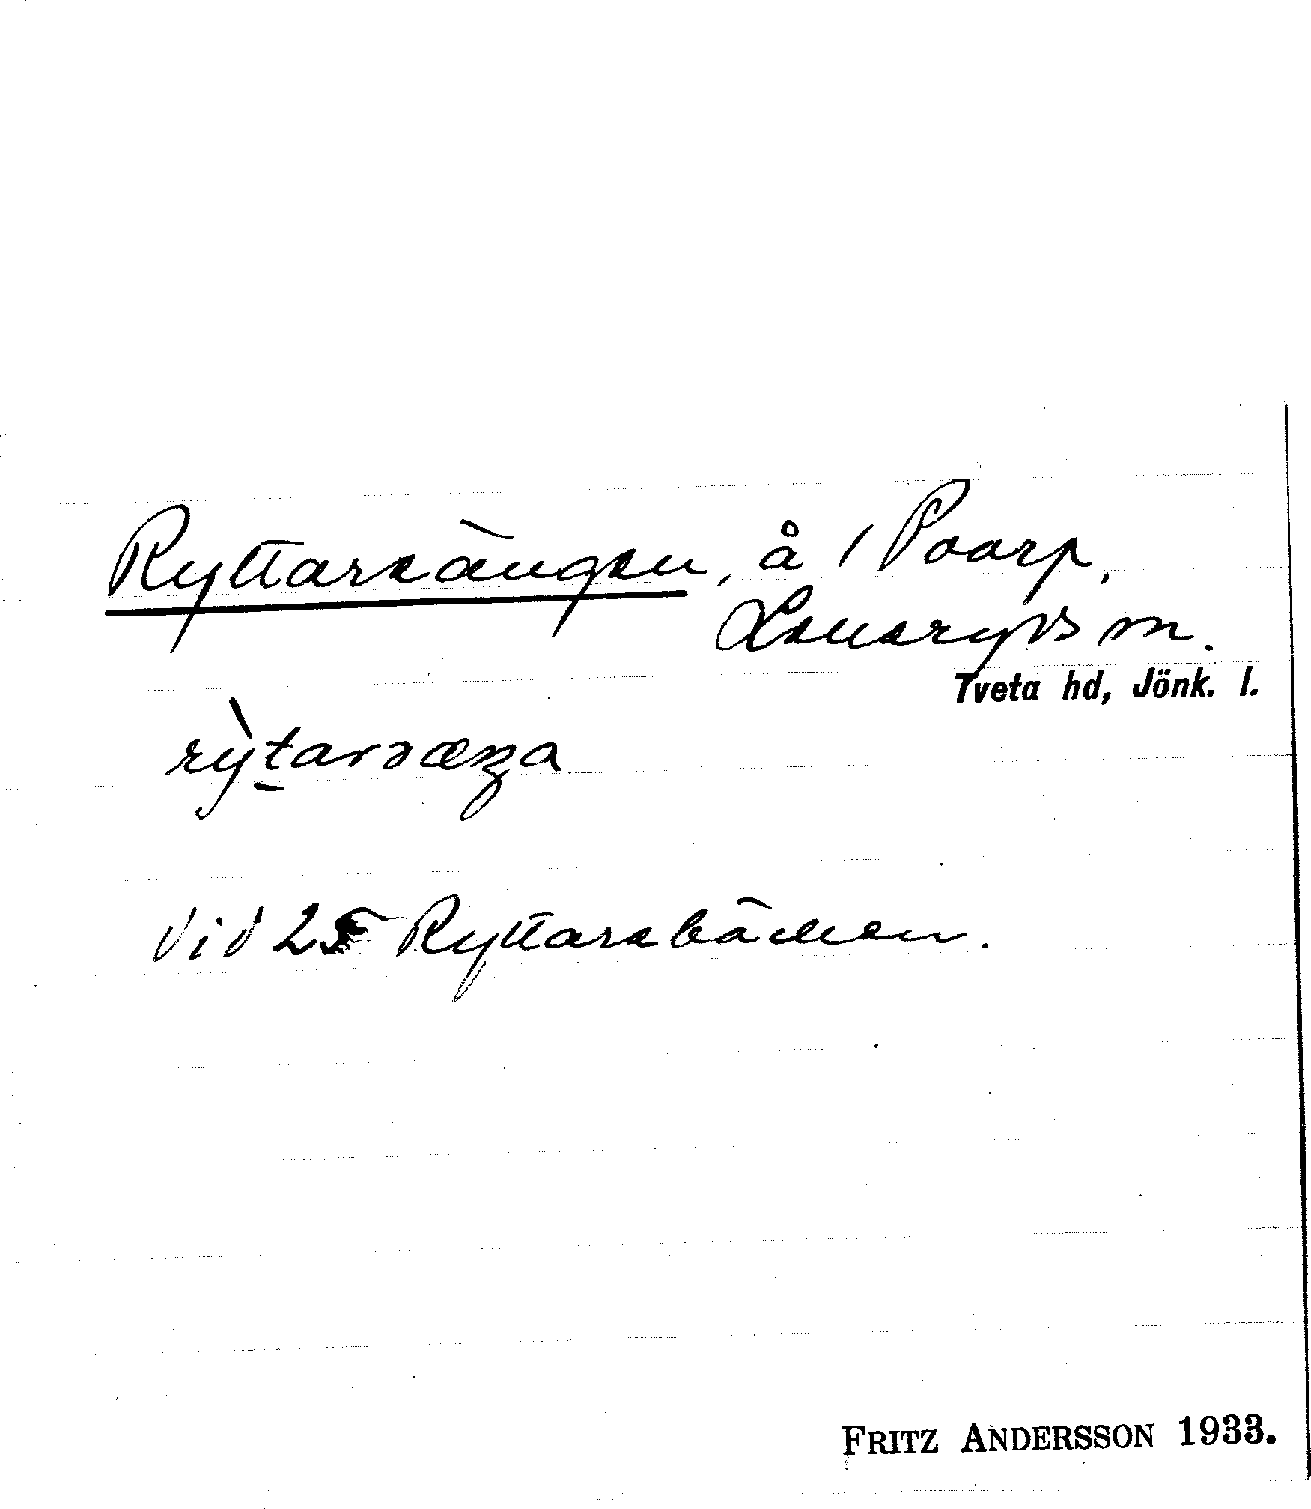 Ryttareängen, å / Poarp,
Lekeryds sn.
Tveta hd, Jönk. l.
rỳtarəæŋa
Vid 25 Ryttarebäcken.
FRITZ ANDERSSON 1933.